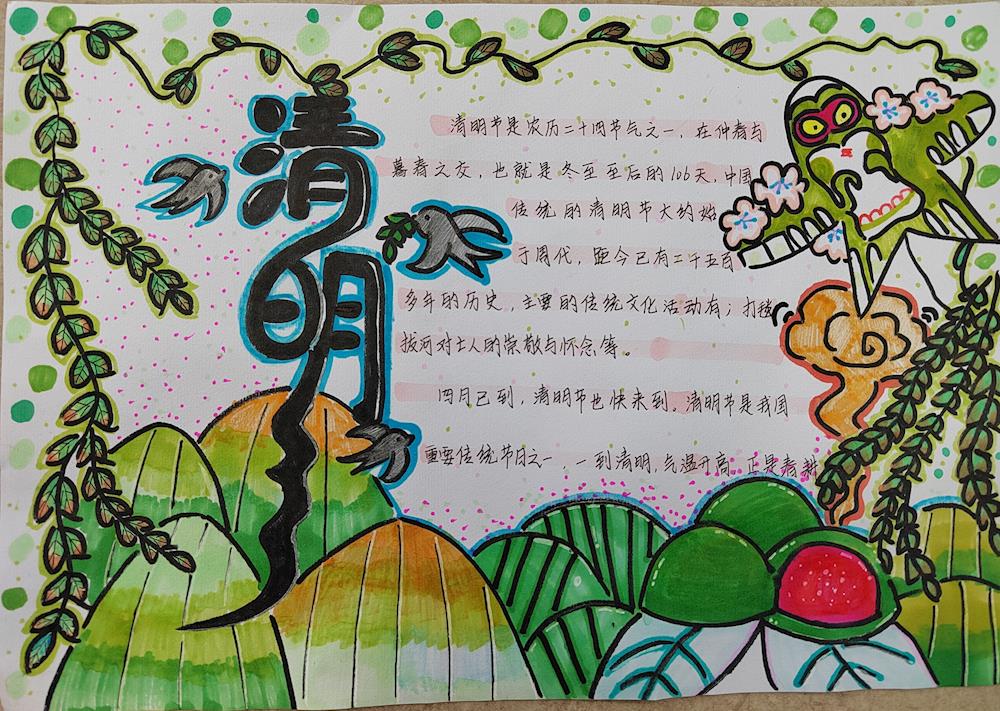 清明
清明节是农历二十四节气之一，在仲春与
暮春之交，也就是冬至至后的106天，中国
传统的清明节大约始
于周代，距今已有二千五百
多年的历史，主要的传统文化活动有；打毬
拔河对士人的崇敬与怀念等。
四月已到，清明节也快来到，清明节是我国
重要传统节日之一，一到清明，气温升高，正是春耕